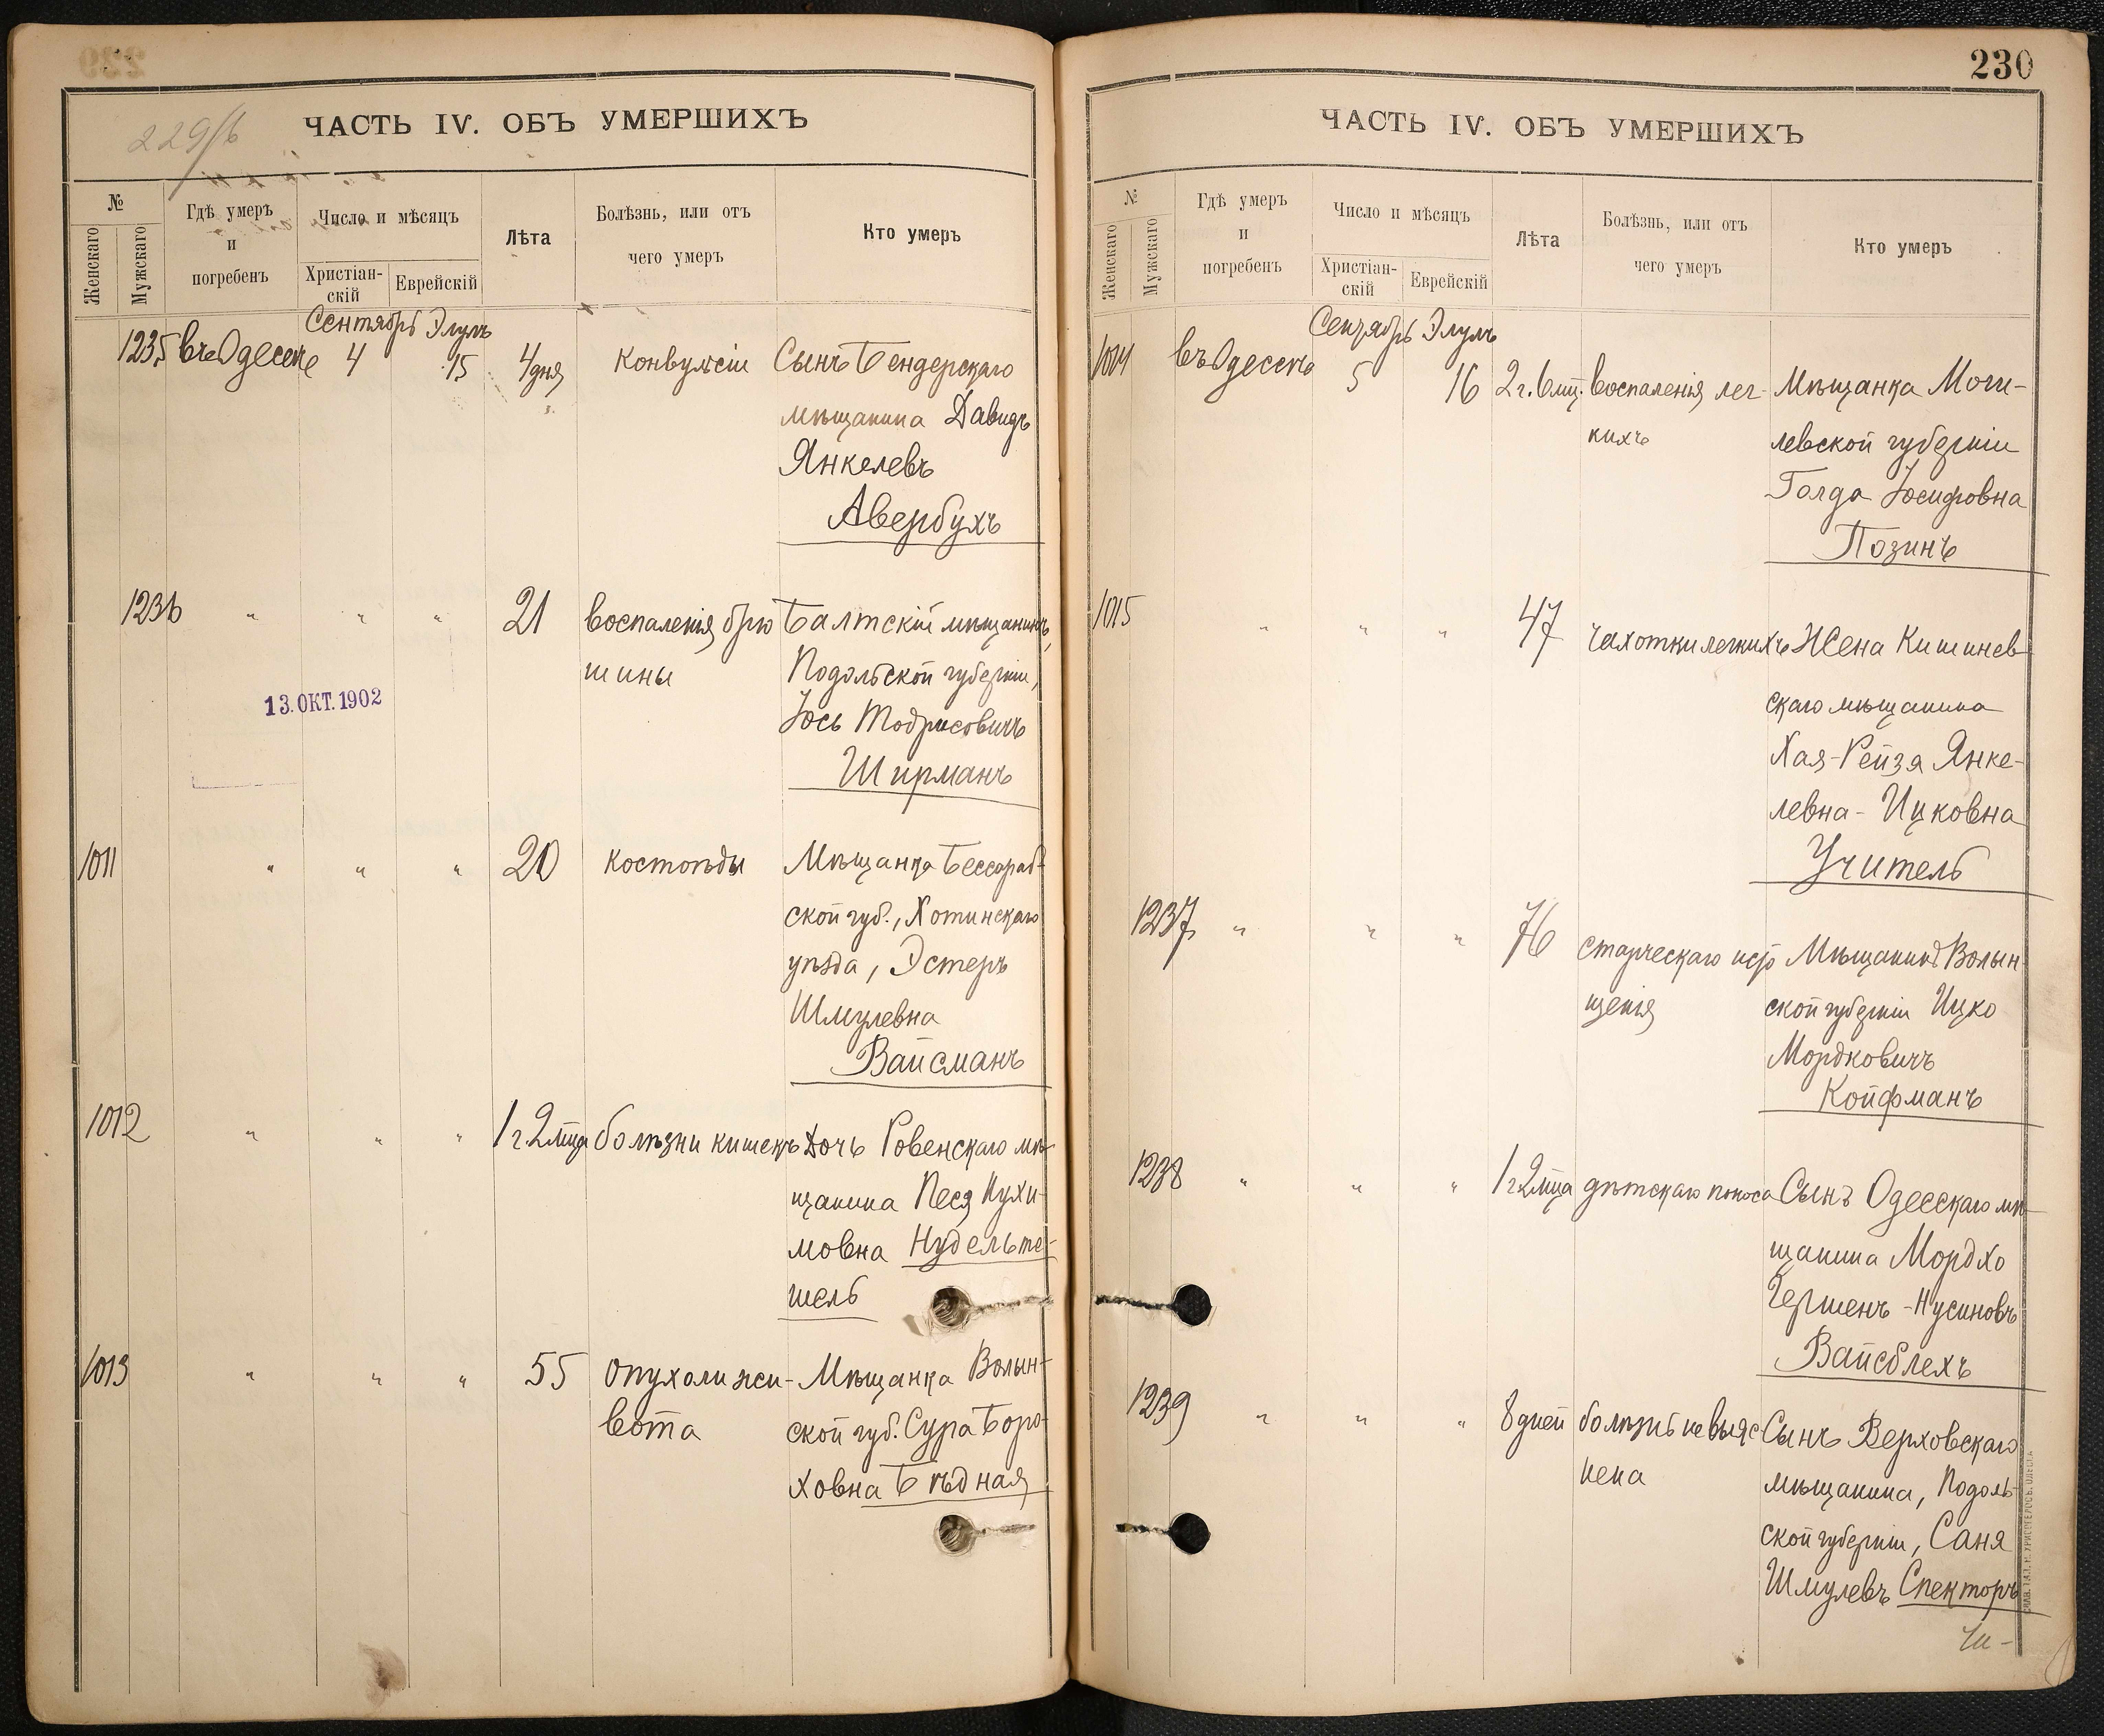 229/б
ЧАСТЬ IV. ОБЪ УМЕРШИХЪ
№
Женскаго
Мужскаго
Гдѣ умеръ
и
погребенъ
Число и мѣсяцъ
Христіан-
скій
Еврейскій
Лѣта
Болѣзнь, или отъ
чего умеръ
Кто умеръ
Сентябрь Элулъ
1235 въ Одессѣ 4 15 4 дня Конвульсіи Сынъ Бендерскаго
мѣщанина Давидъ
Янкелевъ
Авербухъ
1236 " " " 21 воспаленія брю Балтскій мѣщанинъ,
шины Подольской губерніи,
13. ОКТ. 1902
Іось Тодрисовичъ
Ширманъ
1011 " " " 20 костоѣды Мѣщанка Бессараб-
ской губ., Хотинскаго
уѣзда, Эстеръ
Шмулевна
Вайсманъ
1012 " " " 1 г. 2 мца болѣзни кишекъ Дочь Ровенскаго мѣ-
щанина Песя Нухи-
мовна Нудельте-
шель
1013 " " " 55 опухоли жи- Мѣщанка Волын-
вота ской губ. Сура Боро-
ховна Бѣдная
230
ЧАСТЬ IV. ОБЪ УМЕРШИХЪ
№
Женскаго
Мужскаго
Гдѣ умеръ
и
погребенъ
Число и мѣсяцъ
Христіан-
скій
Еврейскій
Лѣта
Болѣзнь, или отъ
чего умеръ
Кто умеръ
Сентябрь Элулъ
1014 въ Одессѣ 5 16 2 г. 6 мц. воспаленія лег- Мѣщанка Моги-
кихъ левской губерніи
Голда Іосифовна
Позинъ
1015 " " " 47 чахотки легкихъ Жена Кишинев-
скаго мѣщанина
Хая-Рейзя Янке-
левна-Ицковна
Учитель
1237 " " " 76 старческаго исто Мѣщанинъ Волын-
щенія ской губерніи Ицко
Мордковичъ
Койфманъ
1238 " " " 1 г 2 мца дѣтскаго поноса Сынъ Одесскаго мѣ-
щанина Мордхо
Гершенъ-Нусиновъ
Вайсблехъ
1239 " " " 8 дней болѣзнь не выяс- Сынъ Верховскаго
нена мѣщанина, Подоль-
ской губерніи, Саня
Шмулевъ Спекторъ